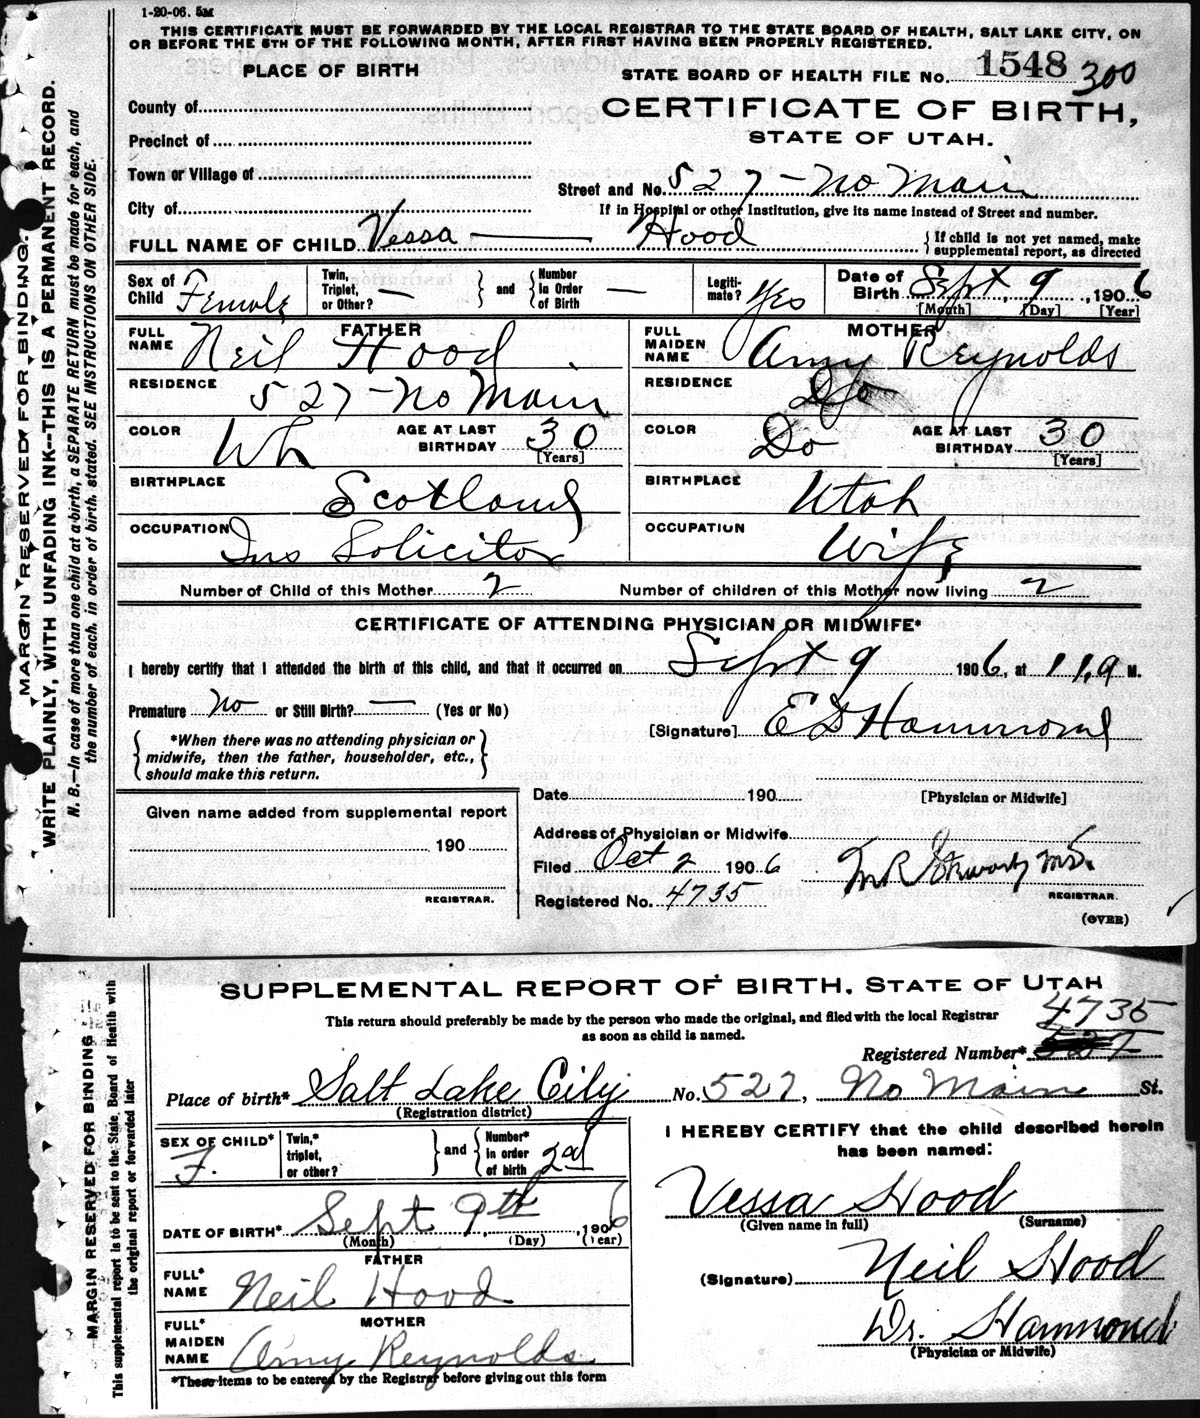 1-20-06. 5M
THIS CERTIFICATE MUST BE FORWARDED BY THE LOCAL REGISTRAR TO THE STATE BOARD OF HEALTH, SALT LAKE CITY, ON
OR BEFORE THE 5TH OF THE FOLLOWING MONTH, AFTER FIRST HAVING BEEN PROPERLY REGISTERED.
PLACE OF BIRTH
STATE BOARD OF HEALTH FILE NO. 1548 300
County of
CERTIFICATE OF BIRTH,
Precinct of
STATE OF UTAH.
Town or Village of
Street and No. 527 - No Main
City of
If in Hospital or other Institution, give its name instead of Street and number.
FULL NAME OF CHILD Vessa — Hood
} If child is not yet named, make
supplemental report, as directed
Sex of Child Female
Twin, Triplet, or Other? — } and { Number in Order of Birth —
Legitimate? Yes
Date of Birth Sept, 9, 1906
[Month] [Day] [Year]
FATHER
FULL NAME Neil Hood
MOTHER
FULL MAIDEN NAME Amy Reynolds
RESIDENCE 527 - No Main
RESIDENCE Do
COLOR Wh AGE AT LAST BIRTHDAY 30 [Years]
COLOR Do AGE AT LAST BIRTHDAY 30 [Years]
BIRTHPLACE Scotland
BIRTHPLACE Utah
OCCUPATION Ins Solicitor
OCCUPATION Wife
Number of Child of this Mother 2 Number of children of this Mother now living 2
CERTIFICATE OF ATTENDING PHYSICIAN OR MIDWIFE*
I hereby certify that I attended the birth of this child, and that it occurred on Sept 9 1906, at 11,a M.
Premature No or Still Birth? — (Yes or No)
[Signature] E S Hammond
{ *When there was no attending physician or
midwife, then the father, householder, etc.,
should make this return. }
Date 190
[Physician or Midwife]
Given name added from supplemental report
190
REGISTRAR.
Address of Physician or Midwife
Filed Oct 2 1906
Registered No. 4735
REGISTRAR.
(OVER)
MARGIN RESERVED FOR BINDING.
WRITE PLAINLY, WITH UNFADING INK--THIS IS A PERMANENT RECORD.
N. B.—In case of more than one child at a birth, a SEPARATE RETURN must be made for each, and
the number of each, in order of birth, stated. SEE INSTRUCTIONS ON OTHER SIDE.
SUPPLEMENTAL REPORT OF BIRTH. STATE OF UTAH
This return should preferably be made by the person who made the original, and filed with the local Registrar
as soon as child is named.
4735
Registered Number* 527
Place of birth* Salt Lake City No. 527, No Main St.
(Registration district)
SEX OF CHILD* F.
Twin,* triplet, or other? } and { Number* in order of birth 2nd
I HEREBY CERTIFY that the child described herein
has been named:
Vessa Hood
(Given name in full) (Surname)
DATE OF BIRTH* Sept 9th, 1906
(Month) (Day) (Year)
FATHER
FULL* NAME Neil Hood
(Signature) Neil Hood
MOTHER
FULL* MAIDEN NAME Amy Reynolds
Dr. Hammond
(Physician or Midwife)
*These items to be entered by the Registrar before giving out this form
MARGIN RESERVED FOR BINDING
This supplemental report is to be sent to the State Board of Health with
the original report or forwarded later